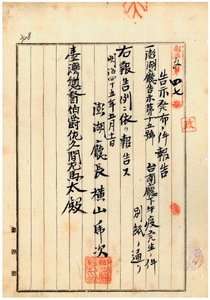 四七
告示発布ノ件報告
一澎湖廳告示第十五號 台南廳下牛疫発生ノ件
別紙ノ通リ
右報告例ニ依リ報告ス
明治四十五年五月十日
澎湖廳長横山虎次
臺湾總督伯爵佐久間左馬太殿